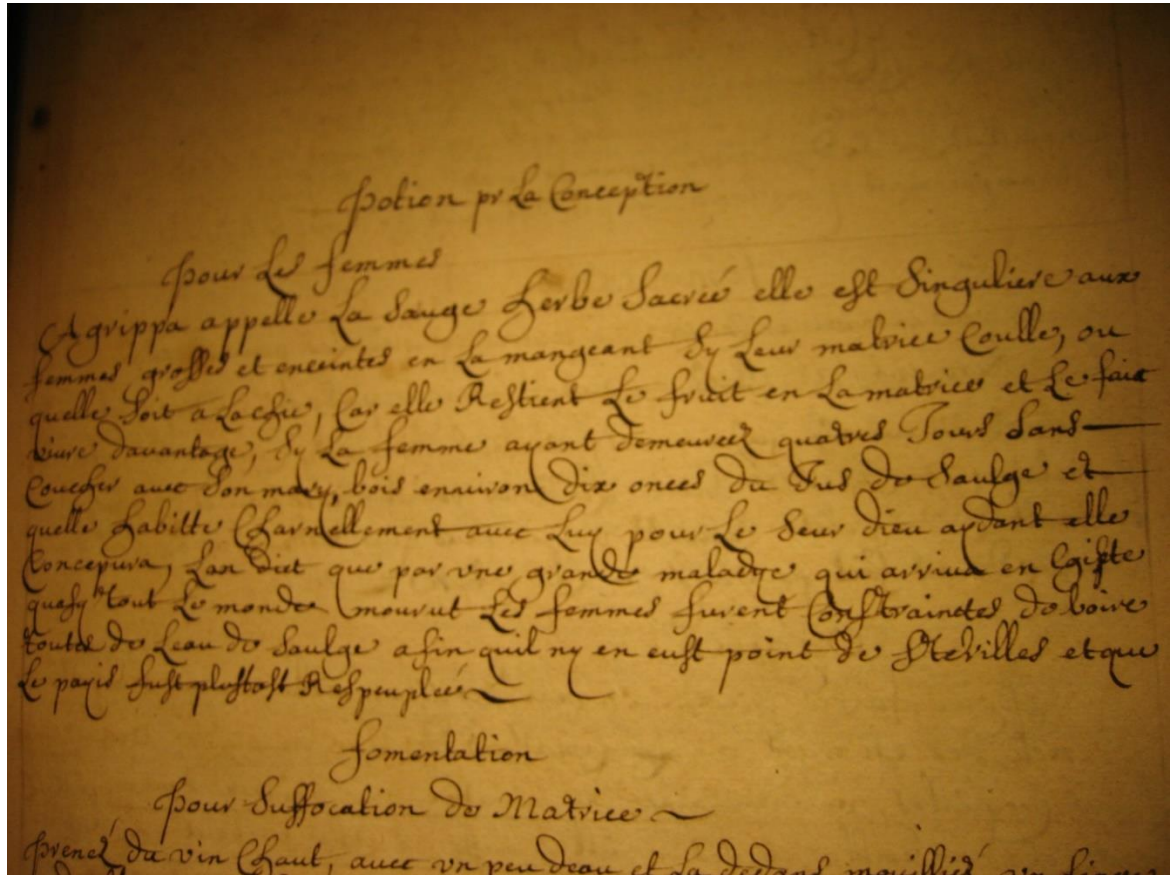 Potion pr La Conception
Pour Les femmes
Agrippa appelle La Sauge herbe Sacreé elle est Singuliere aux
femmes grosses et enceintes en La mangeant Sy Leur matrice Coulle, ou
quelle Soit a Lachie, Car elle Restient Le fruit en La matrice et Le faict
viure davantage, Sy La femme ayant demeureez quatres Jours Sans
Coucher avec Son mary, bois environ dix onces du Jus de Saulge et
quelle habitte Charnellement avec Luy pour Le Seur dieu aydant elle
Concepura, Lan diet que par vne grande maladye qui arriva en Egipte
quasy tout Le monde mourut Les femmes furent Constrainctes de boire
toutes de Leau de Saulge afin quil ny en eust point de Sterilles et que
Le payis fust plustost Respeupleé
fomentation
Pour Suffocation de Matrice
Prenez du vin Chaut, avec vn peu deau et La dedans mouilliés vn linge